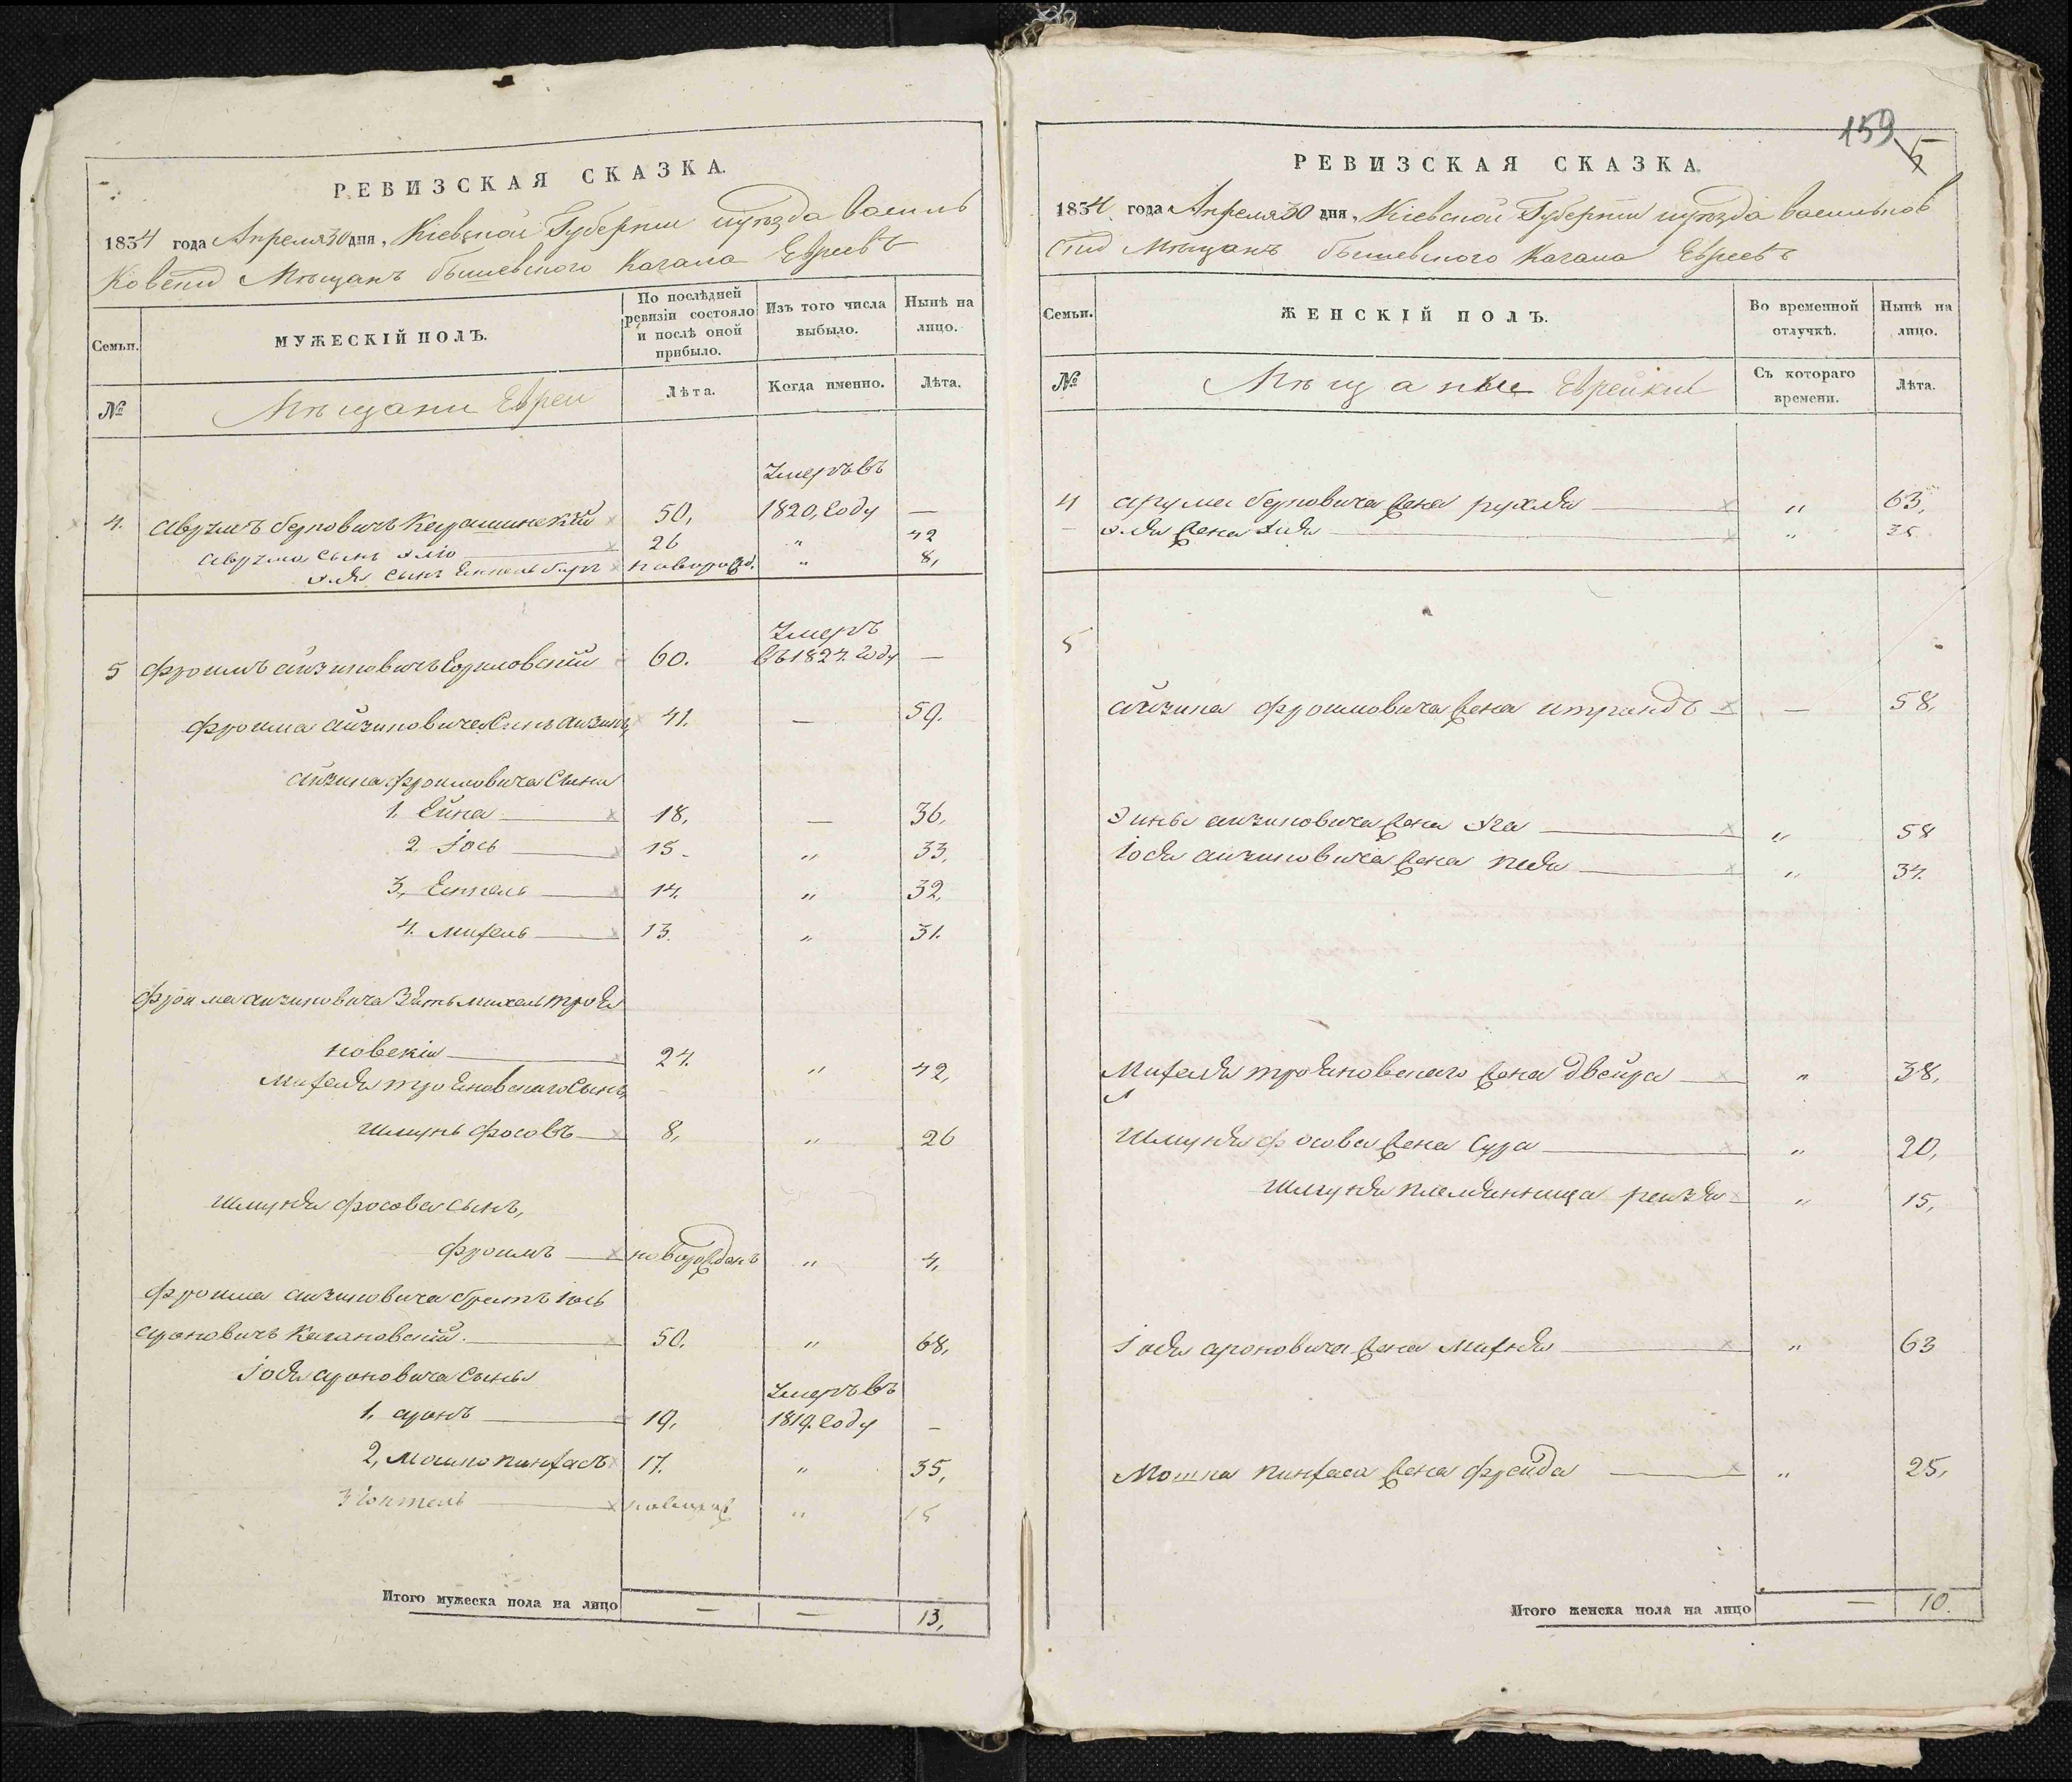 РЕВИЗСКАЯ СКАЗКА.
1834 года Апреля 30 дня, Кіевской Губерніи уѣзда Василь
Мѣщанъ Бышевского Кагала Евреевъ
Семьи.
МУЖЕСКІЙ ПОЛЪ.
По послѣдней ревизіи состояло и послѣ оной прибыло.
Изъ того числа выбыло.
Нынѣ на лицо.
№
Мѣщани Евреи
Лѣта.
Когда именно.
Лѣта.
Умеръ въ
4. Аврумъ Берковичъ 50, 1820, Году —
Аврума Сынъ Элio 26 " 42
Эля Сынъ новорожд. " 8,
Умеръ
5 Фроимъ Айзиковичъ 60. въ 1827. Году —
Фроима Айзиковича Сынъ Айзикъ, 41. — 59.
Айзика Фроимовича Сыни
1. 18, — 36,
2, Іось 15 - " 33,
3, 14. " 32,
4. Михель 13. " 31.
Фроима Айзиковича Зять Михель Троя
новскій 24. " 42,
Михеля Трояновского Сынъ,
Шмунь Фосовъ 8, " 26
Шмуня Фосова Сынъ,
Фроимъ новорожданъ " 4,
Фроима Айзиковича братъ Іось
Ароновичъ Кагановскій. 50. " 68,
Іося Ароновича Сыны
Умеръ въ
1, Аронъ 19, 1819. Году —
2, Мошко Пинхасъ 17. " 35,
3 " 15
Итого мужеска пола на лицо — — 13,
159
5
РЕВИЗСКАЯ СКАЗКА.
1834 года Апреля 30 дня, Кіевской Губерніи уѣзда Васильков
Мѣщанъ Бышевского Кагала Евреевъ
Семьи.
ЖЕНСКІЙ ПОЛЪ.
Во временной отлучкѣ.
Нынѣ на лицо.
№
Мѣщанки Еврейкие
Съ котораго времени.
Лѣта.
4 Берковича жена Рухля " 63,
Эля жена " 35
5
Айзика Фроимовича жена — 58,
Айзиковича жена " 58
Іося Айзиковича жена " 34.
Михеля Трояновского жена Двейра " 38,
Шмуня Фосова жена Сура " 20,
Шмуня племянница Рейзя " 15,
Іося Ароновича жена " 63
Мошка Пинхаса жена Фрейда " 25,
Итого женска пола на лицо — 10.